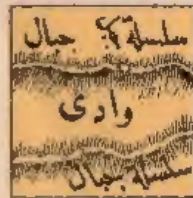 سلسلۂ جبال
وادی
سلسلۂ جبال